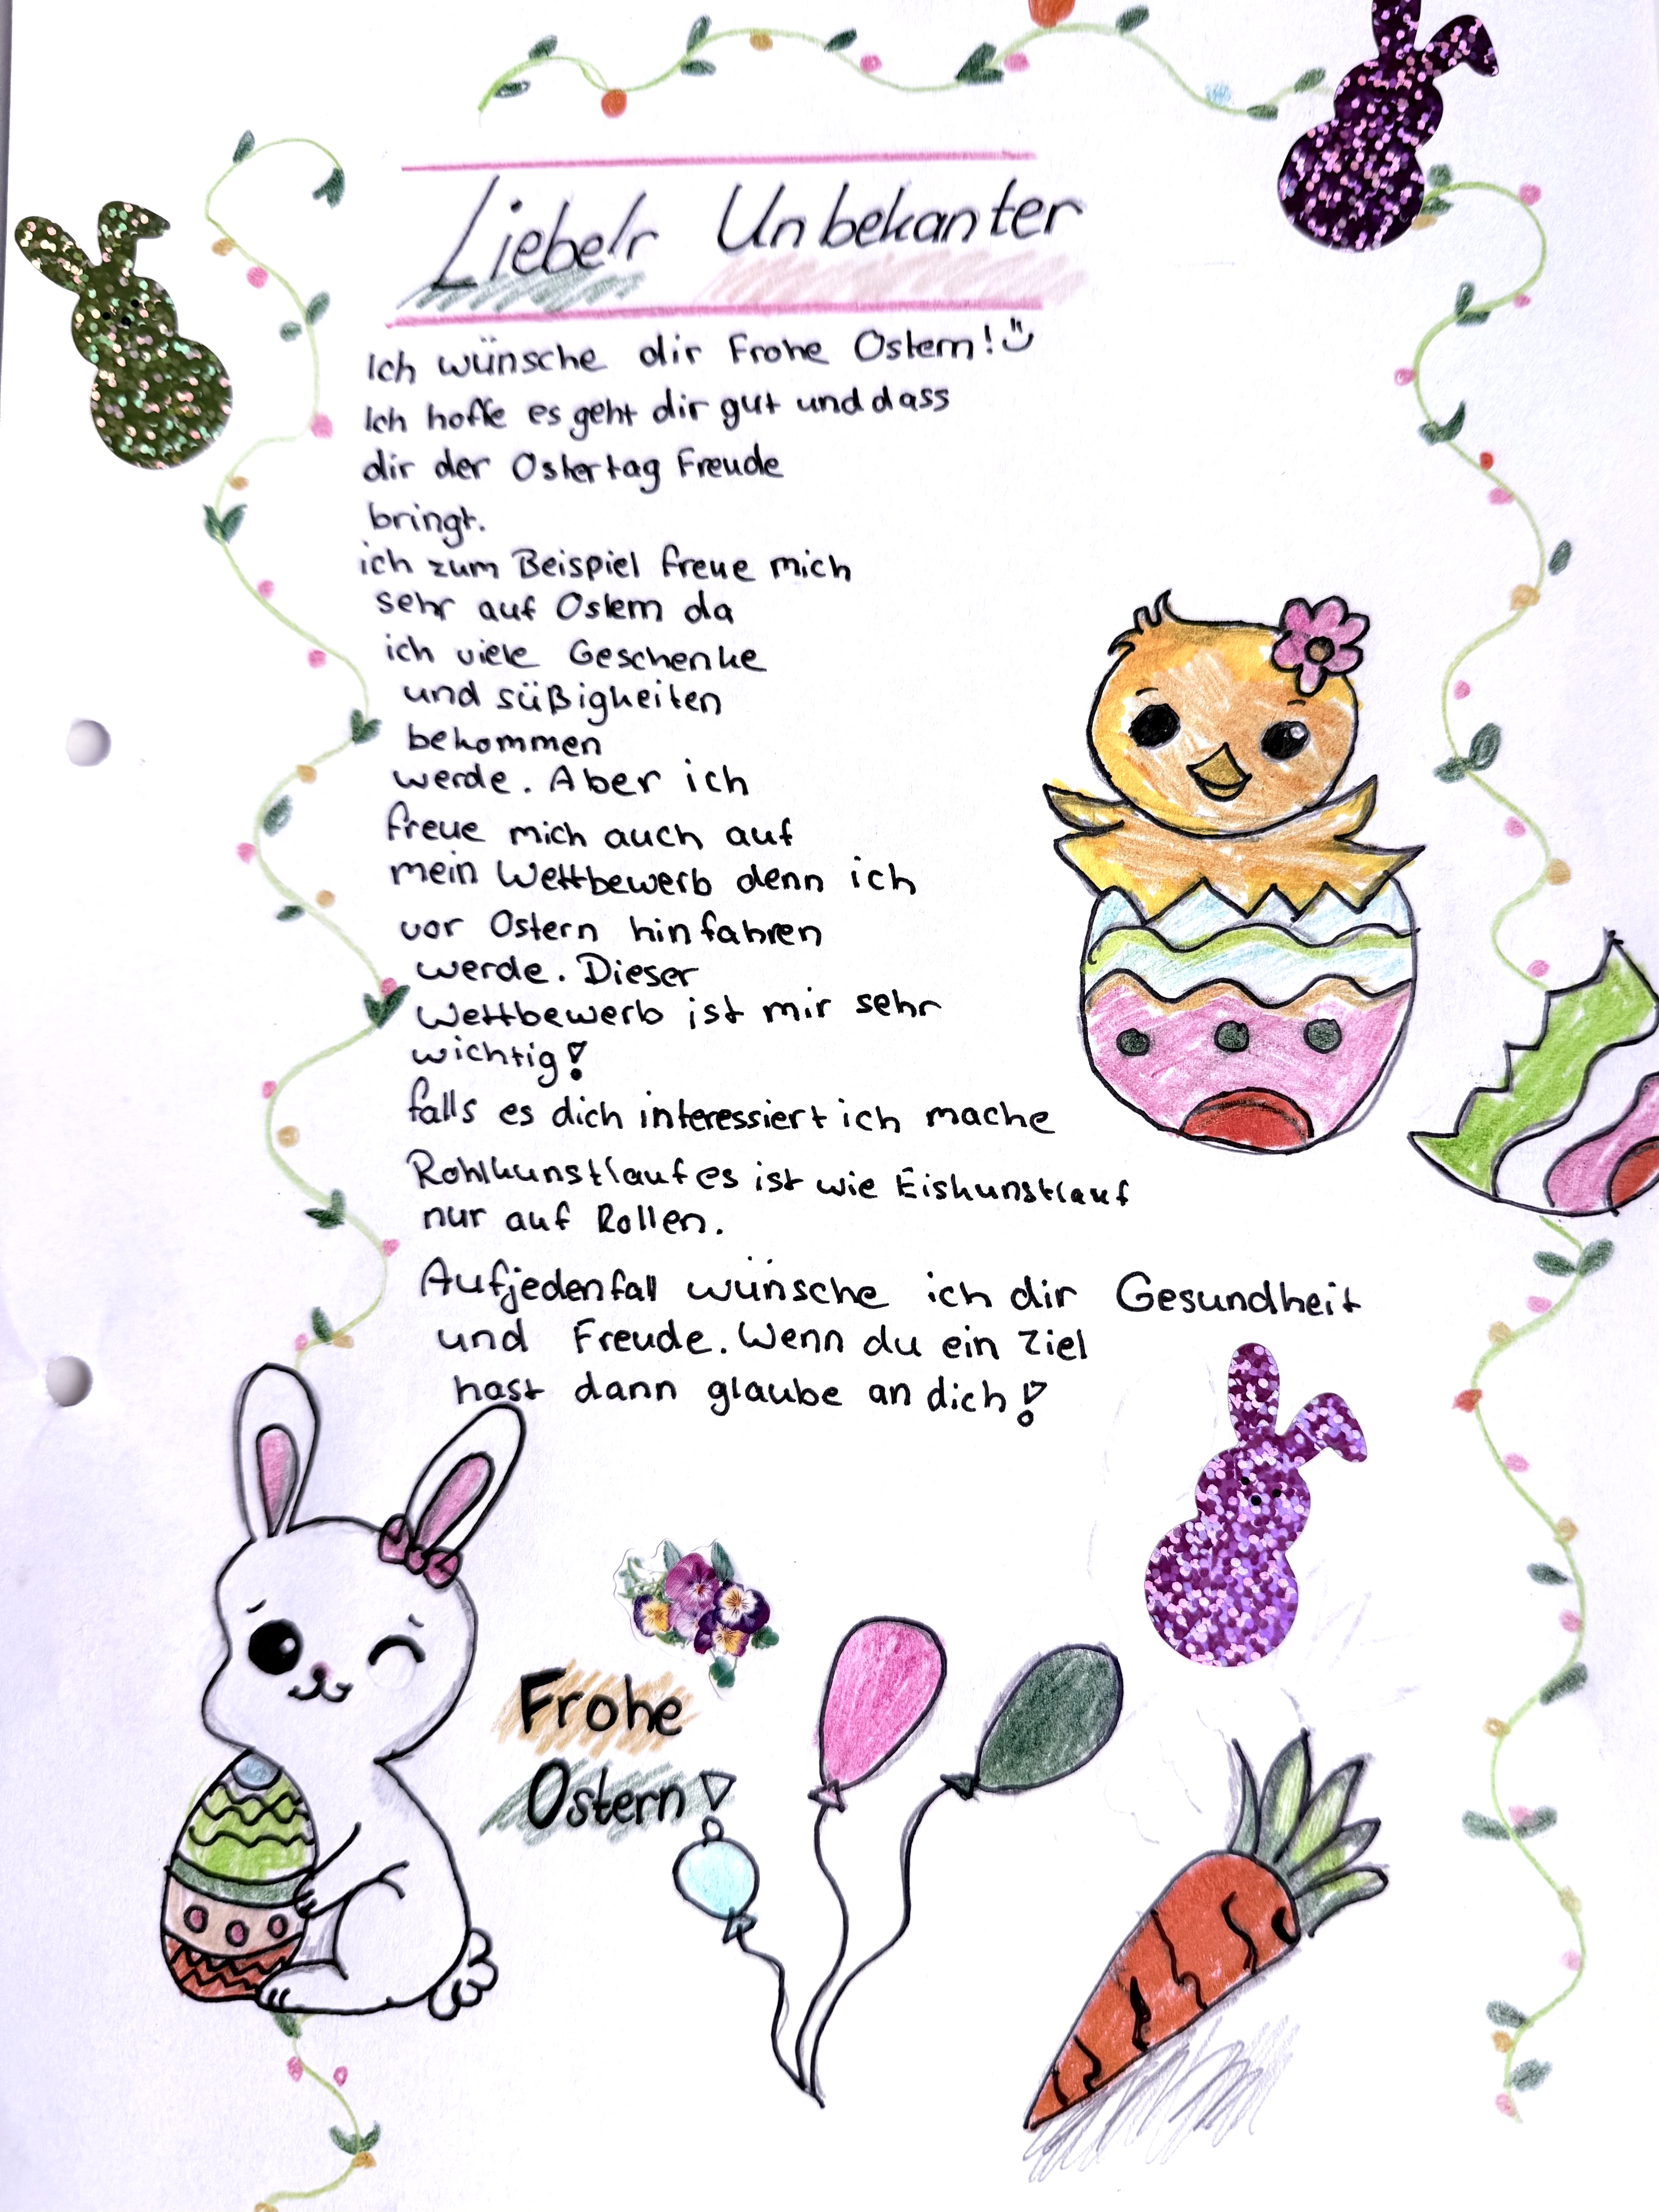 Liebe/r Unbekanter
Ich wünsche dir Frohe Ostern!
Ich hoffe es geht dir gut und dass
dir der Ostertag Freude
bringt.
ich zum Beispiel freue mich
sehr auf Ostern da
ich viele Geschenke
und süßigkeiten
bekommen
werde. Aber ich
freue mich auch auf
mein Wettbewerb denn ich
vor Ostern hinfahren
werde. Dieser
Wettbewerb ist mir sehr
wichtig!
falls es dich interessiert ich mache
Rohlkunstlauf es ist wie Eiskunstlauf
nur auf Rollen.
Aufjedenfall wünsche ich dir Gesundheit
und Freude. Wenn du ein Ziel
hast dann glaube an dich!
Frohe
Ostern!